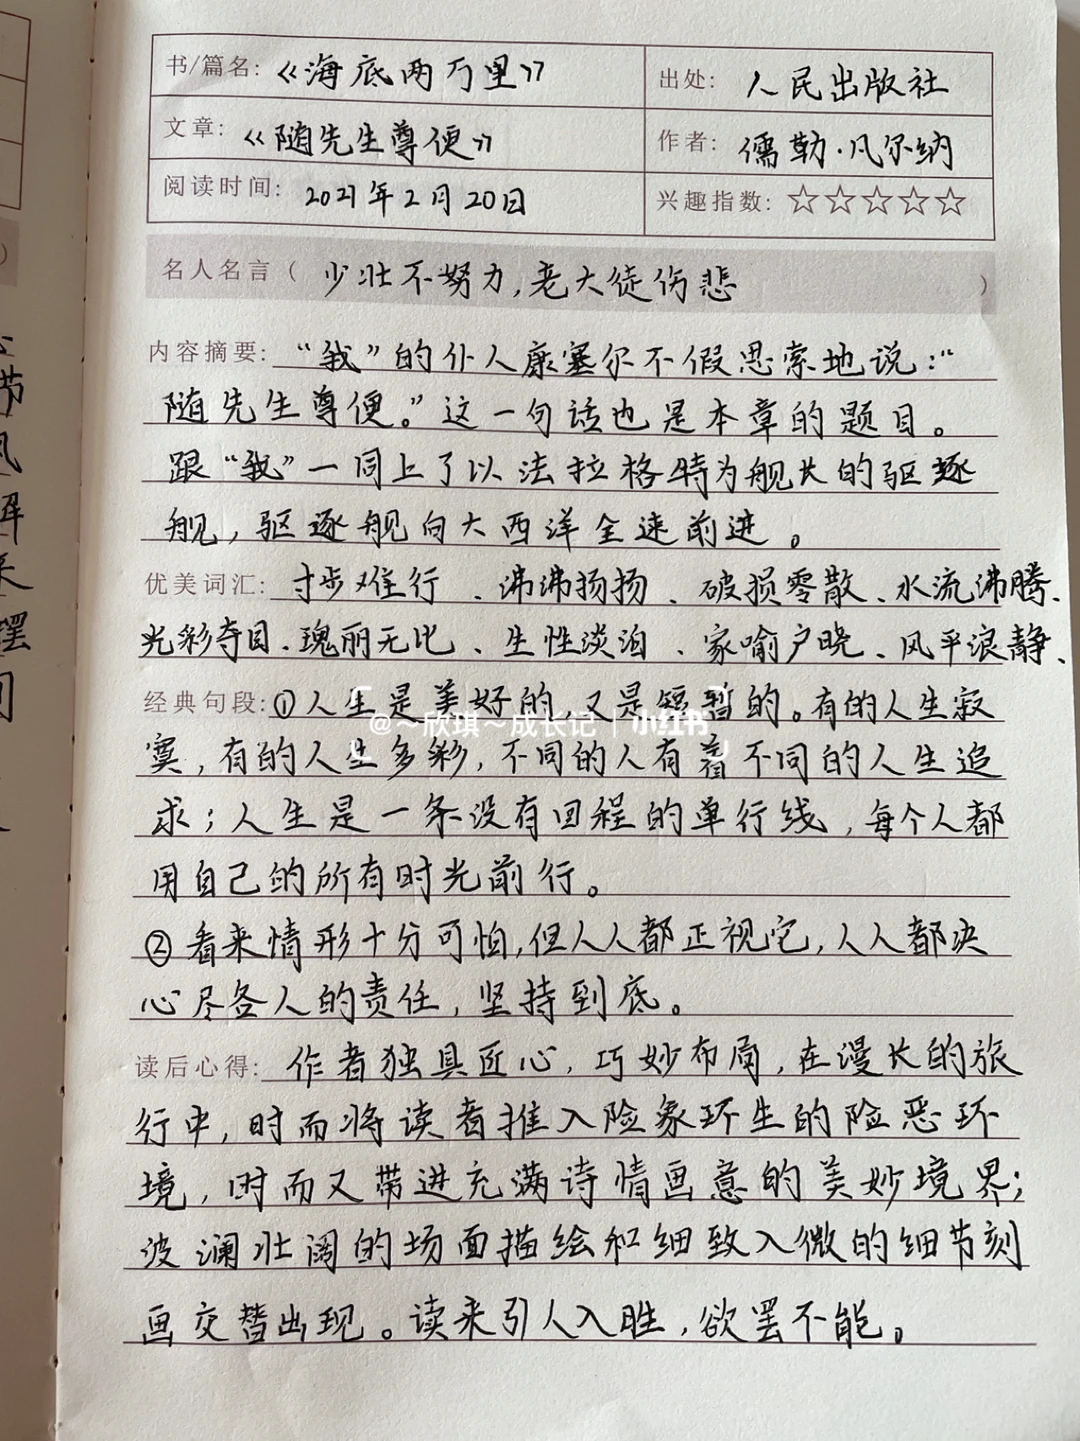 书/篇名: 《海底两万里》 出处: 人民出版社
文章: 《随先生尊便》 作者: 儒勒·凡尔纳
阅读时间: 2021年2月20日 兴趣指数: ☆☆☆☆☆
名人名言( 少壮不努力,老大徒伤悲 )
内容摘要: “我”的仆人康塞尔不假思索地说:“
随先生尊便。”这一句话也是本章的题目。
跟“我”一同上了以法拉格特为舰长的驱逐
舰,驱逐舰向大西洋全速前进。
优美词汇: 寸步难行、沸沸扬扬、破损零散、水流沸腾、
光彩夺目、瑰丽无比、生性淡泊、家喻户晓、风平浪静、
经典句段: ①人生是美好的,又是短暂的。有的人生寂
寞,有的人生多彩,不同的人有着不同的人生追
求;人生是一条没有回程的单行线,每个人都
用自己的所有时光前行。
②看来情形十分可怕,但人人都正视它,人人都决
心尽各人的责任,坚持到底。
读后心得: 作者独具匠心,巧妙布局,在漫长的旅
行中,时而将读者推入险象环生的险恶环
境,时而又带进充满诗情画意的美妙境界;
波澜壮阔的场面描绘和细致入微的细节刻
画交替出现。读来引人入胜,欲罢不能。
@~欣琪~成长记 | 小红书
节
风
摆